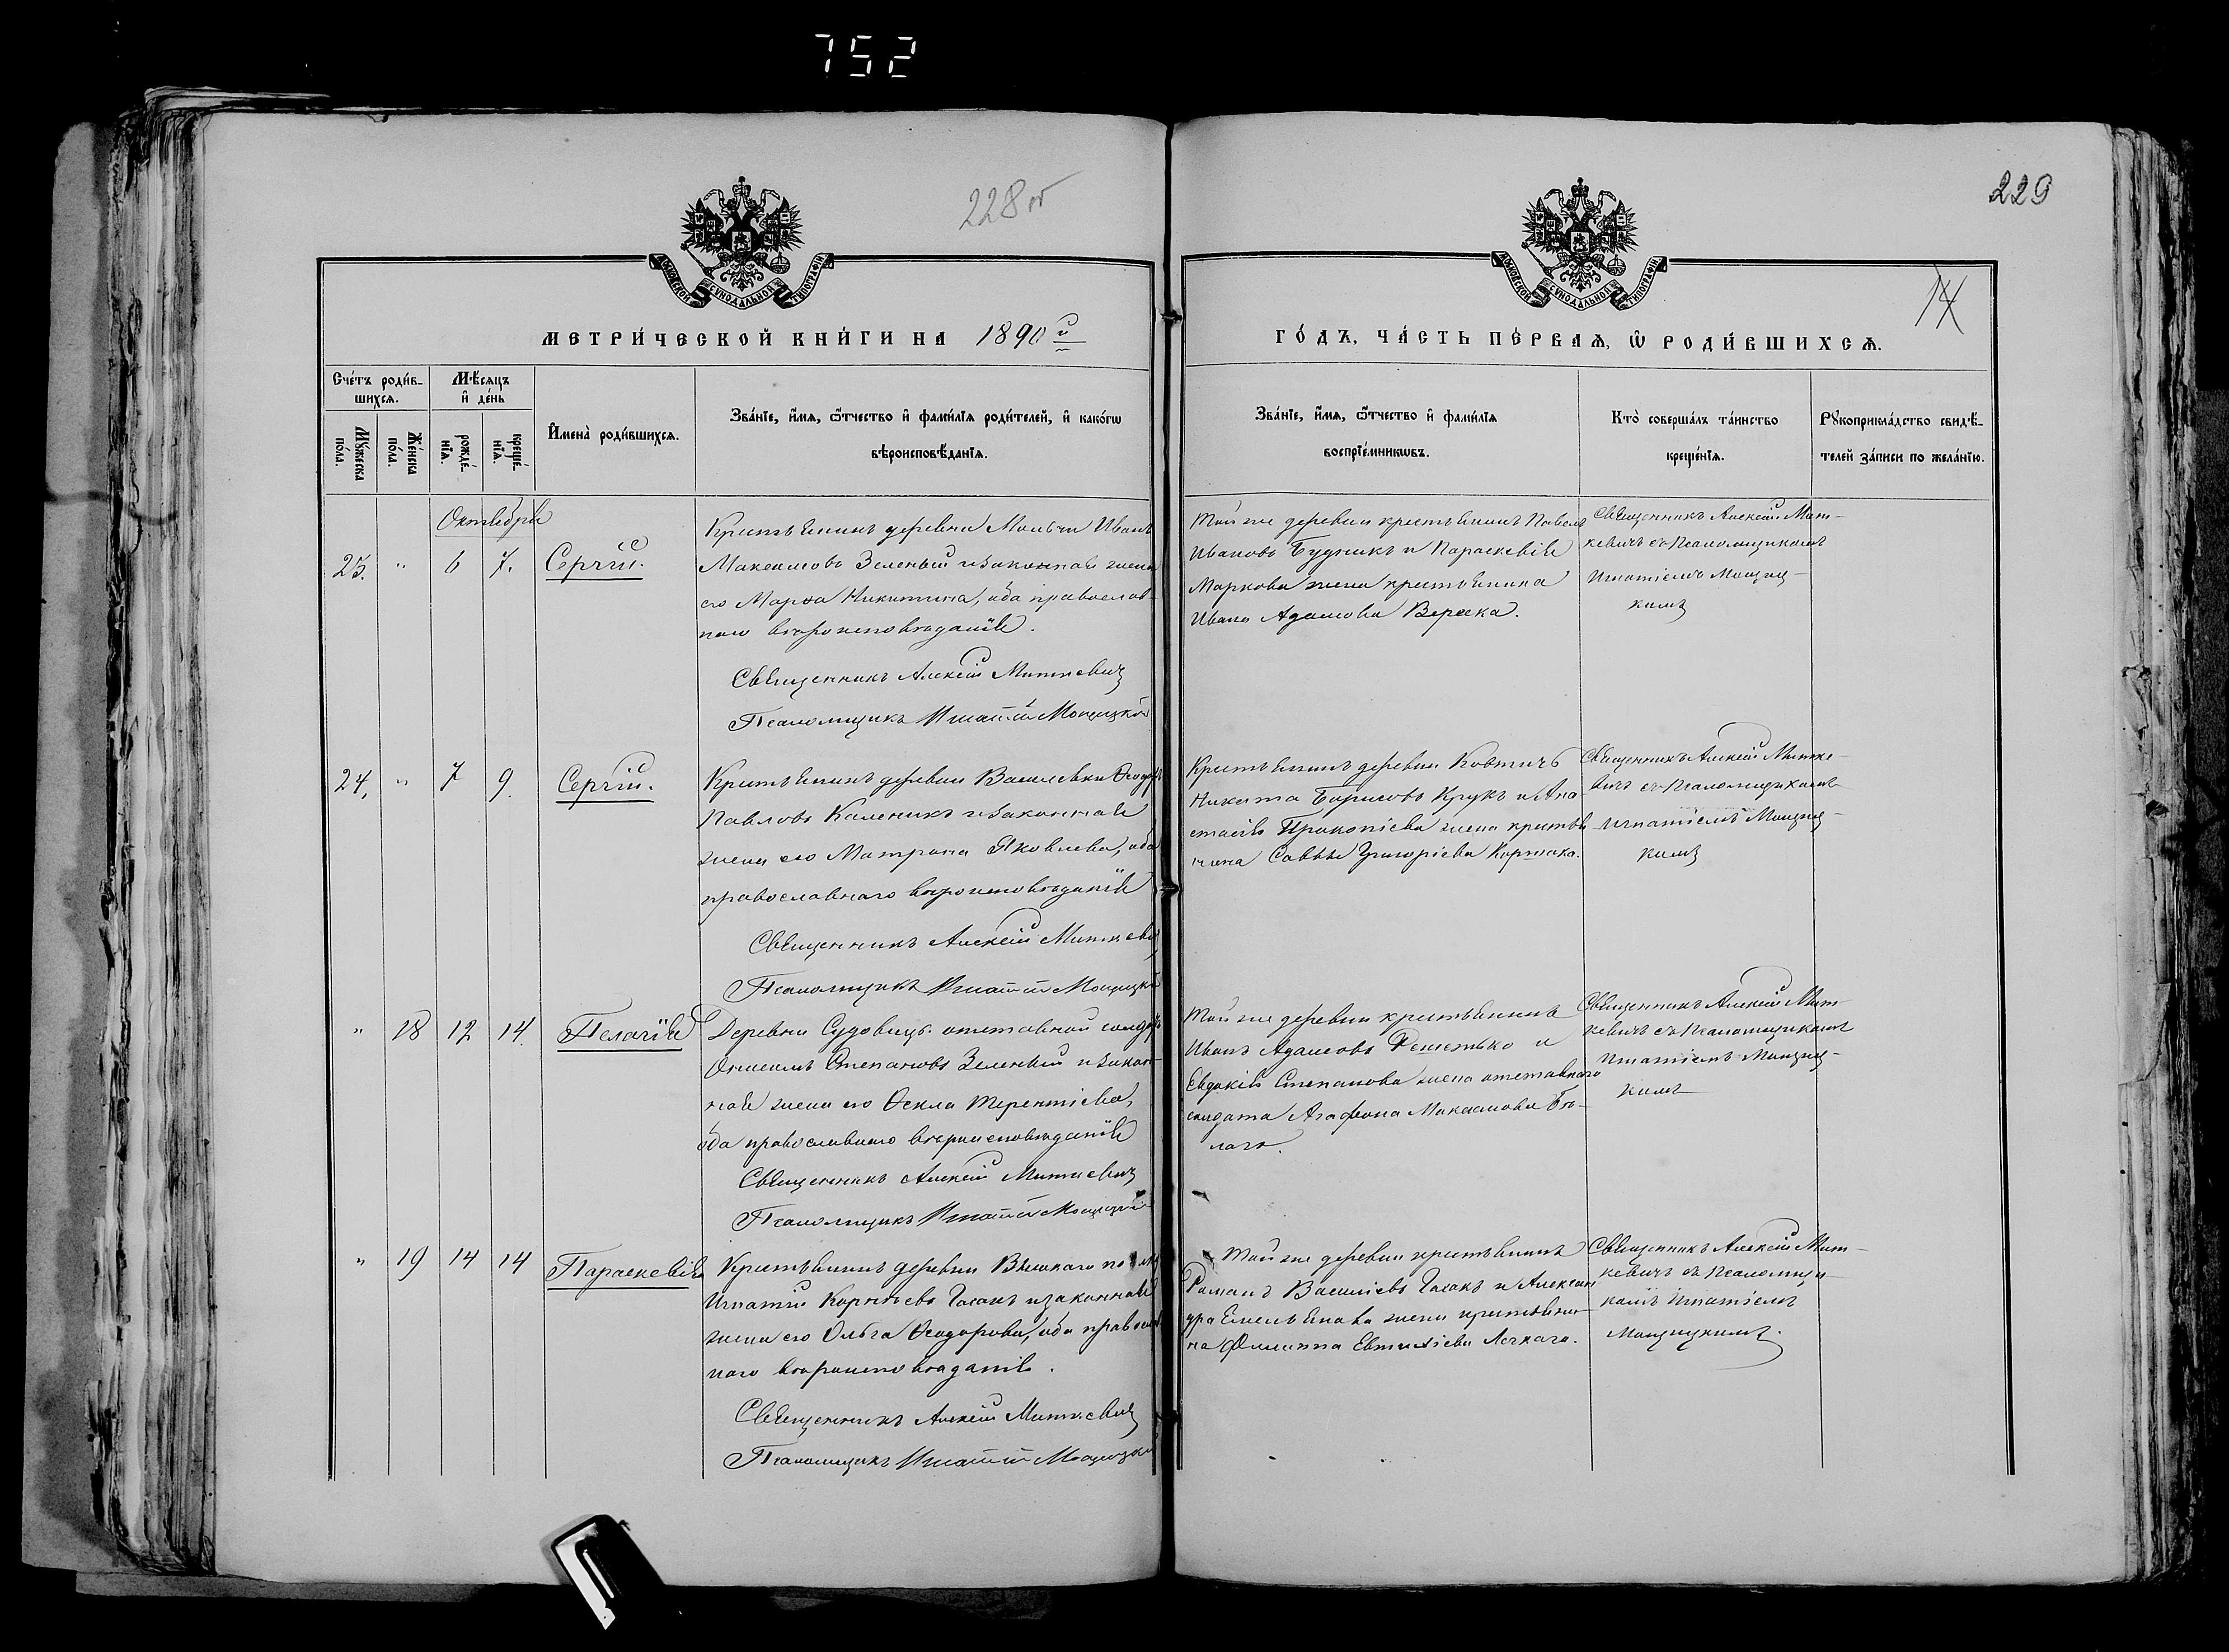 752
228 об
229
14
МОСКОВСКОЙ СѴНОДАЛЬНОЙ ТИПОГРАФІИ
МОСКОВСКОЙ СѴНОДАЛЬНОЙ ТИПОГРАФІИ
МЕТРИ́ЧЕСКОЙ КНИ́ГИ НА 1890 г
ГО́ДЪ, ЧА́СТЬ ПЕ́РВАѦ, Ѿ РОДИ́ВШИХСѦ.
Сче́тъ роди́в-
шихсѧ.
Мꙋ́жеска по́ла.
Же́нска по́ла.
Мѣ́сѧцъ
и҆ де́нь
рожде́-
нїѧ.
креще́-
нїѧ.
И҆мена̀ роди́вшихсѧ.
Зва́нїе, и҆́мѧ, ѻ҆́тчество и҆ фами́лїѧ роди́телей, и҆ како́гѡ
вѣроисповѣ́данїѧ.
Зва́нїе, и҆́мѧ, ѻ҆́тчество и҆ фами́лїѧ
воспрїе́мникѡвъ.
Кто̀ соверша́лъ та́инство
креще́нїѧ.
Рꙋкоприкла́дство свидѣ́-
телей за́писи по жела́нїю.
Октября
23. " 6 7. Сергій.
Крестьянинъ деревни Иванъ
Максимовъ Зеленый и законная жена
его Марѳа Никитина, оба православ-
наго вѣроисповѣданія.
Священникъ Алексій Миткевич
Псаломщикъ Игнатій Мощицкій
Той же деревни крестьянинъ Павелъ
Ивановъ Будникъ и Параскевія
Маркова жена крестьянина
Ивана Адамова Вереска.
Священникъ Алексій Мит-
кевичъ съ Псаломщикомъ
Игнатіемъ Мощиц-
кимъ
24, " 7 9. Сергій.
Крестьянинъ деревни Василевки Ѳеодоръ
Павловъ Каленикъ и законная
жена его Матрона Яковлева, оба
православнаго вѣроисповѣданія
Священникъ Алексій Миткевич
Псаломщикъ Игнатій Мощицкій
Крестьянинъ деревни Ковтичъ
Никита Борисовъ Крукъ и Ана
стасія Прокопіева жена крестья
нина Саввы Григоріева Коржака.
Священникъ Алексій Митке-
вичъ съ Псаломщикомъ
Игнатіемъ Мощиц-
кимъ
" 18 12 14. Пелагія
Деревни Судовицъ отставной солдатъ
Онисимъ Степановъ Зеленый и закон-
ная жена его Ѳекла Терентіева,
оба православнаго вѣроисповѣданія
Священникъ Алексій Миткевичъ
Псаломщикъ Игнатій Мощицкій
Той же деревни крестьянинъ
Иванъ Адамовъ Решетько и
Евдокія Степанова жена отставнаго
солдата Агафона Максимова Бѣ-
лаго.
Священникъ Алексій Мит-
кевичъ съ Псаломщикомъ
Игнатіемъ Мощиц-
кимъ
" 19 14 14 Параскевія
Крестьянинъ деревни
Игнатій Корнѣевъ Гасакъ и законная
жена его Ольга Ѳеодорова, оба православ
наго вѣроисповѣданія.
Священникъ Алексій Миткевич
Псаломщикъ Игнатій Мощицкій
Той же деревни крестьянинъ
Романъ Василіевъ Гасакъ и Алексан
дра Емельянова жена крестьяни-
на Филиппа Евтихіева Легкаго.
Священникъ Алексій Мит-
кевичъ съ Псаломщи-
комъ Игнатіемъ
Мощицкимъ.